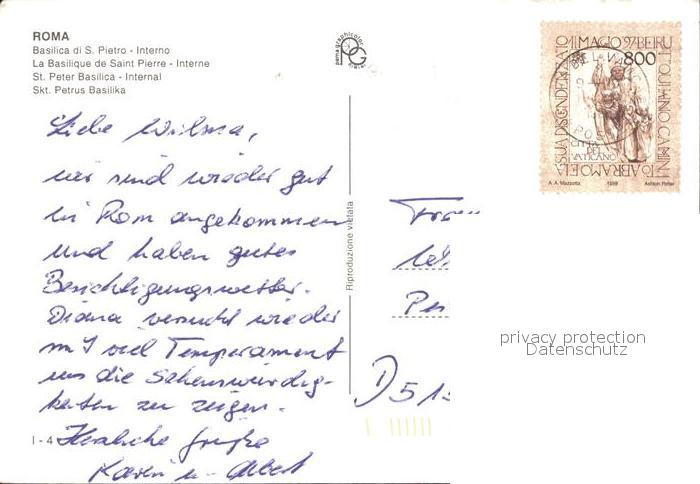 ROMA
Basilica di S. Pietro - Interno
La Basilique de Saint Pierre - Interne
St. Peter Basilica - Internal
Skt. Petrus Basilika
Liebe Wilma,
wir sind wieder gut
in Rom angekommen
und haben gutes
Besichtigungswetter.
Diana versucht wieder
mit viel Temperament
uns die Sehenswürdig-
keiten zu zeigen.
Herzliche Grüße
Karin u. Albert
I - 4
Riproduzione vietata
800
CITTÀ
DEL
VATICANO
A. A. Mazzotta 1998 Ashton Potter
Frau
D 515
privacy protection
Datenschutz